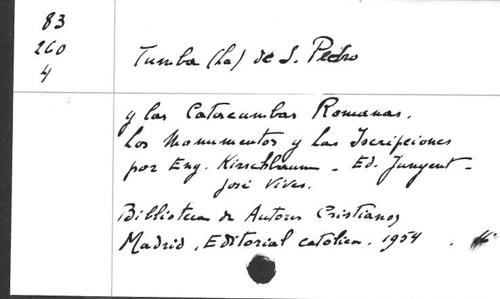 83
260
4
Tumba (La) de S. Pedro
y las Catacumbas Romanas.
Los Monumentos y las Iscripciones
por Eng. Kirschbaum - Ed. Junyent -
José Vives.
Biblioteca de Autores Cristianos
Madrid, Editorial católica. 1954 .